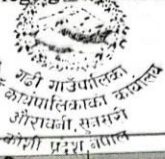 गढी गाउँपालिका
कार्यपालिकाको कार्यालय
औराबनी, सुनसरी
कोशी प्रदेश नेपाल